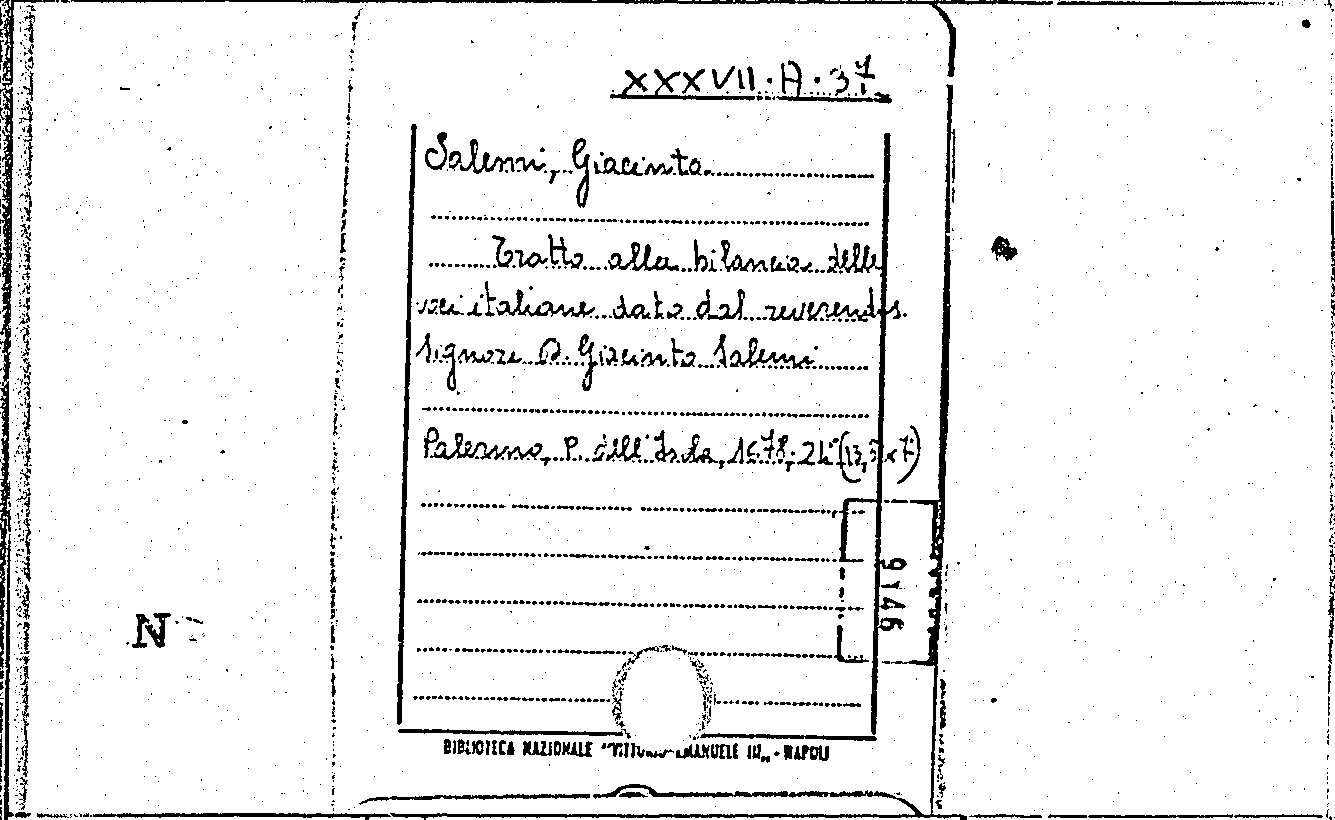 XXXVII. A. 37
Salemi, Giacinto.
Tratto alla bilancia delle
voci italiane dato dal reverendis.
Signore D. Giacinto Salemi
Palermo, P. dell'Isola, 1678, 24° (13,
9146
N
BIBLIOTECA NAZIONALE "VITTORIO EMANUELE III" - NAPOLI